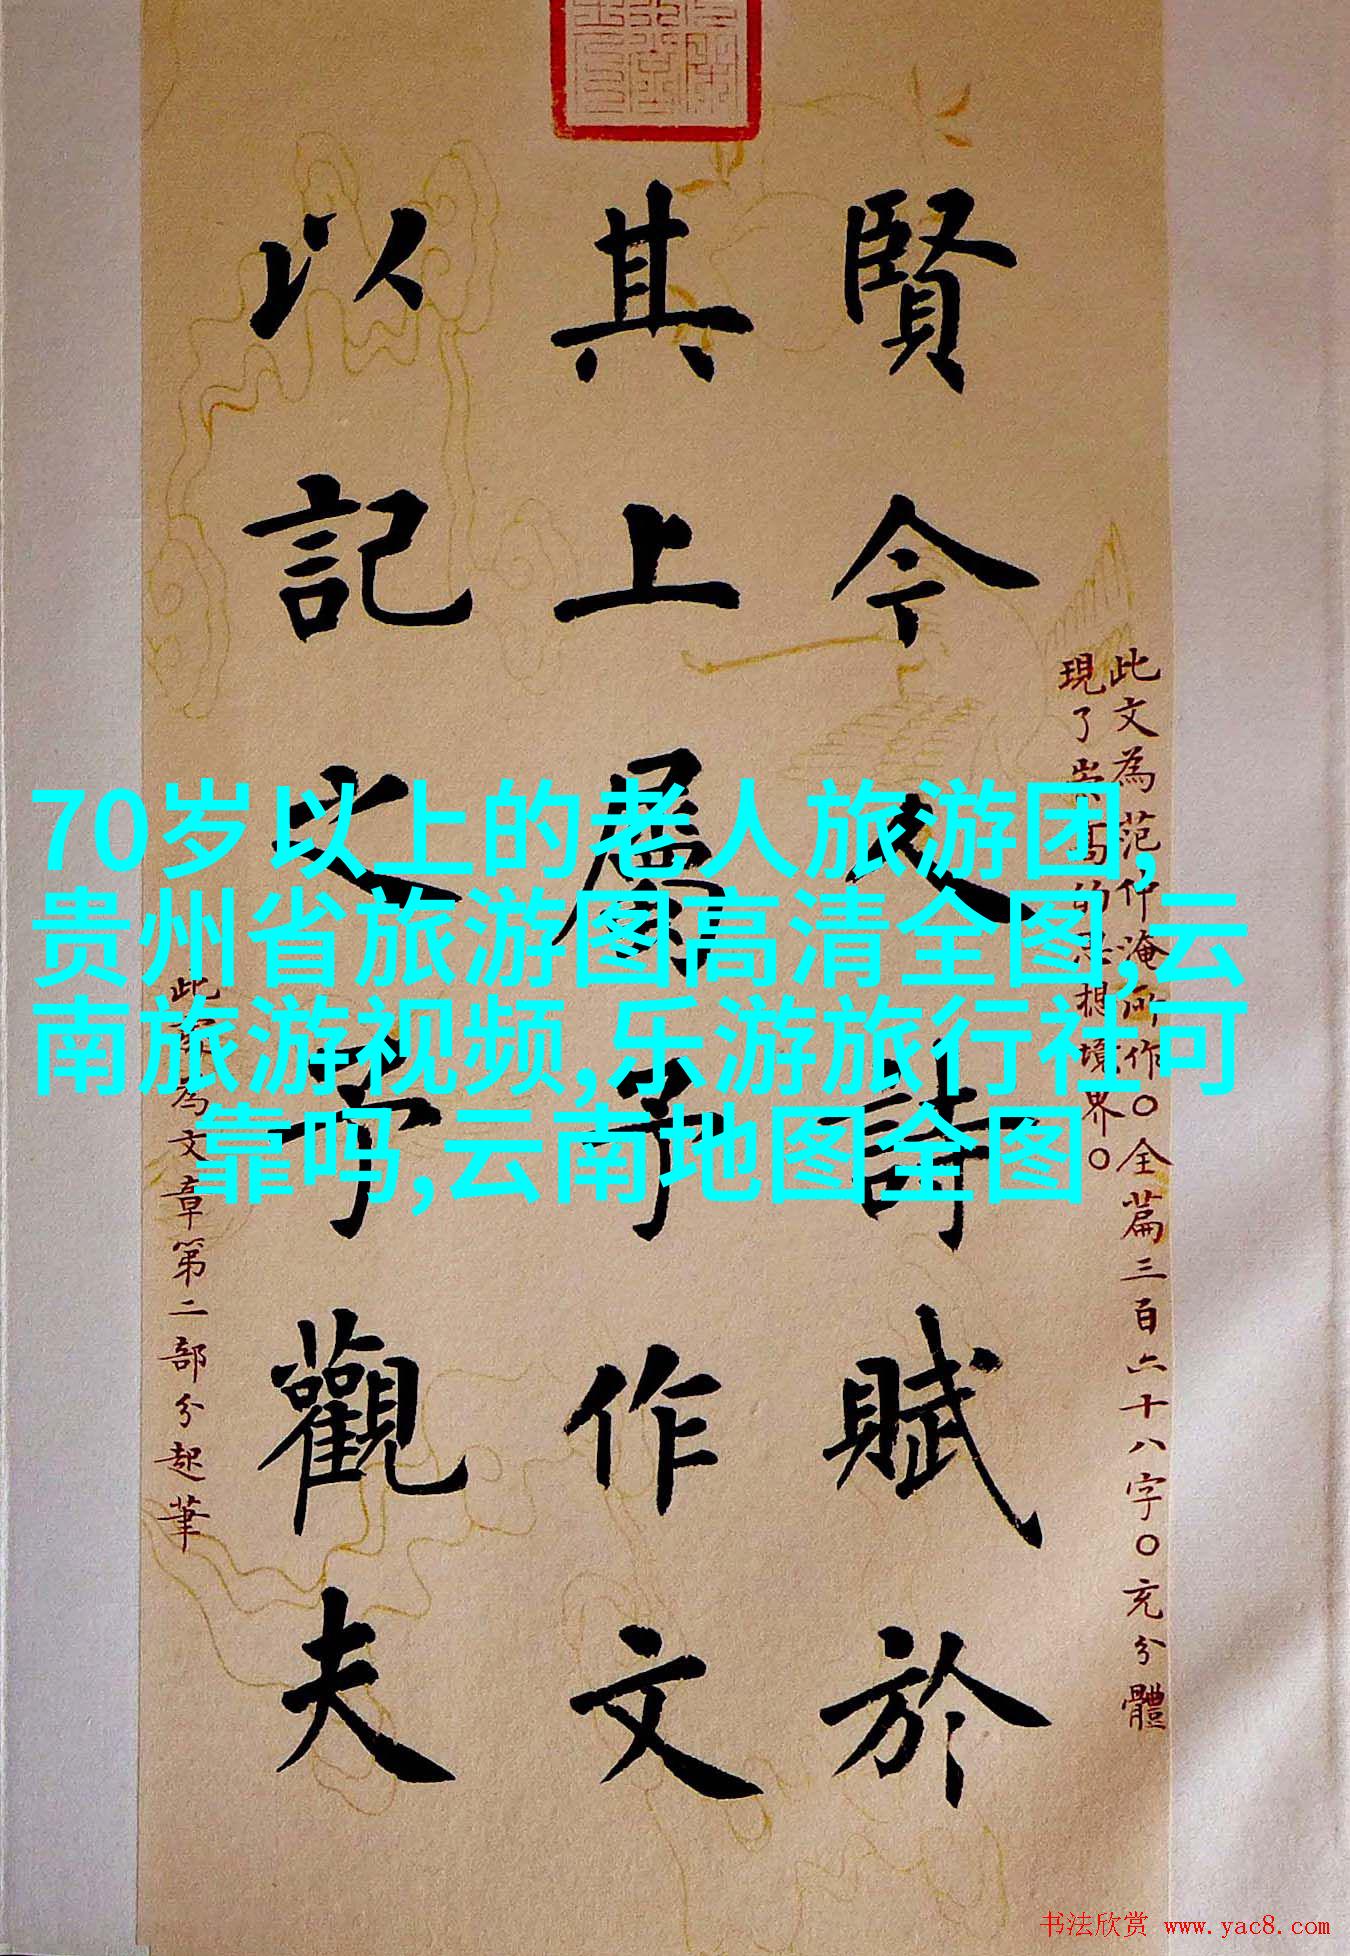 賢今人詩賦於
其上屬予作文
以記之予觀夫
此文為范仲淹所作。全篇三百六十八字。充分體
現了崇高的思想境界。
此字為文章第二部分起筆
70岁以上的老人旅游团,
贵州省旅游图高清全图,云
南旅游视频,乐游旅行社可
靠吗,云南地图全图
书法欣赏 www.yac8.com